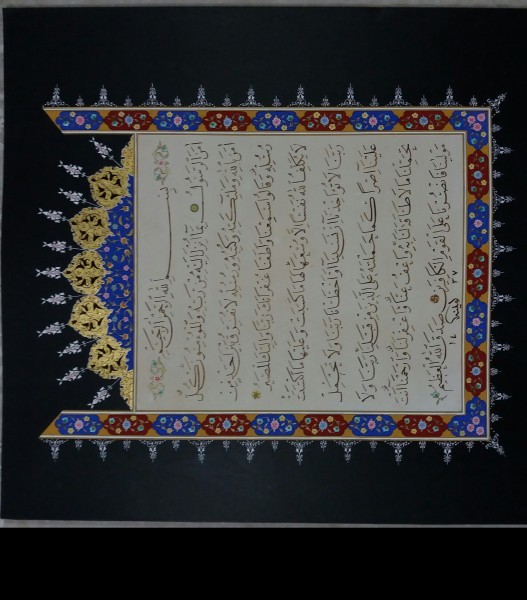 بسم الله الرحمن الرحيم
آمن الرسول بما أنزل إليه من ربه والمؤمنون كل
آمن بالله وملئكته وكتبه ورسله لا نفرق بين أحد من
رسله وقالوا سمعنا وأطعنا غفرانك ربنا وإليك المصير
لا يكلف الله نفسا إلا وسعها لها ما كسبت وعليها ما اكتسبت
ربنا لا تؤاخذنا إن نسينا أو أخطأنا ربنا ولا تحمل
علينا إصرا كما حملته على الذين من قبلنا ربنا ولا
تحملنا ما لا طاقة لنا به واعف عنا واغفر لنا وارحمنا أنت
مولينا فانصرنا على القوم الكافرين صدق الله العظيم
١٤ ٣٧